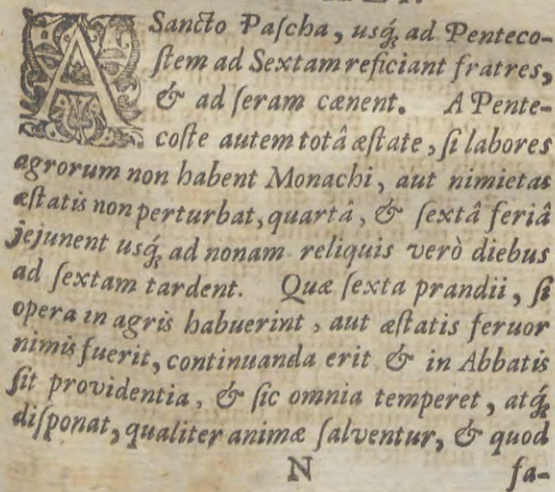 A Sancto Paſcha, usq́; ad Penteco-
ſtem ad Sextam reficiant fratres,
& ad ſeram cænent. A Pente-
coſte autem totâ æſtate, ſi labores
agrorum non habent Monachi, aut nimietas
æſtatis non perturbat, quartâ, & ſextâ feriâ
jejunent usq́; ad nonam reliquis verò diebus
ad ſextam tardent. Quæ ſexta prandii, ſi
opera in agris habuerint, aut æſtatis feruor
nimis fuerit, continuanda erit & in Abbatis
ſit providentia, & ſic omnia temperet, atq́;
diſponat, qualiter animæ ſalventur, & quod
N fa-